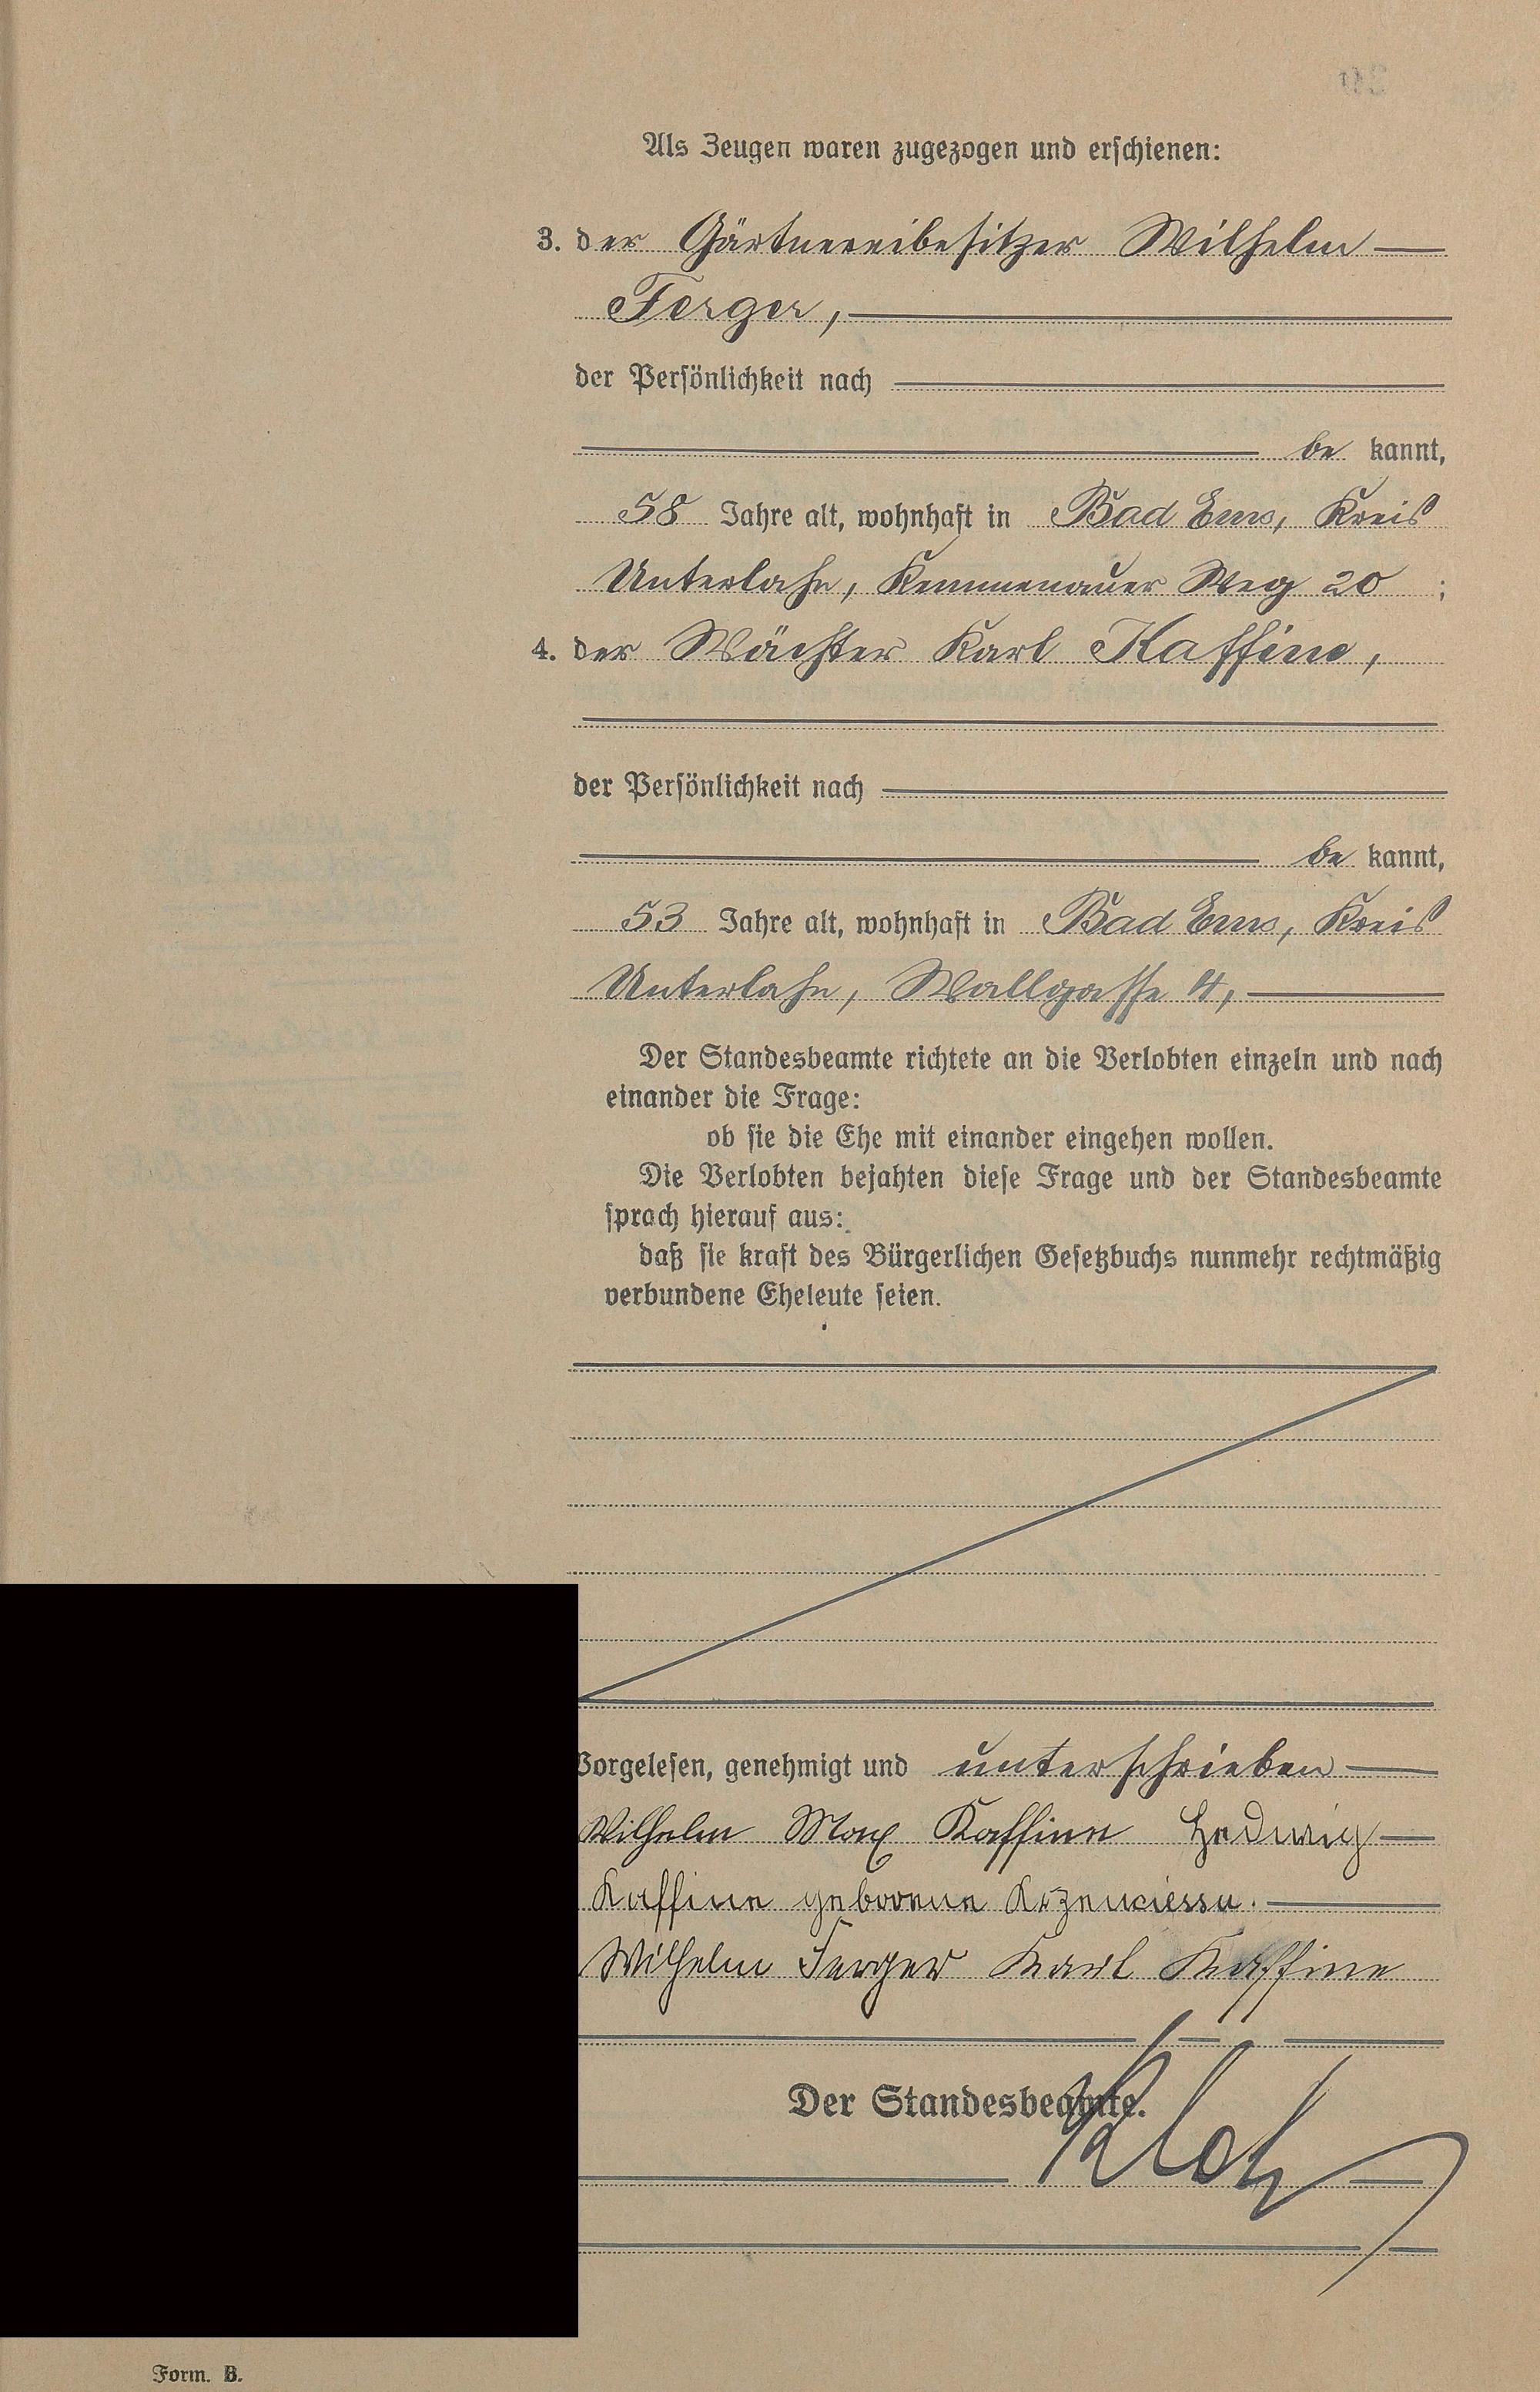 Als Zeugen waren zugezogen und erschienen:
3. der Gärtnereibesitzer Wilhelm
Ferger,
der Persönlichkeit nach
be kannt,
58 Jahre alt, wohnhaft in Bad Ems, Kreis
Unterlahn, Kemmenauer Weg 20 ;
4. der Wächter Karl Kaffine,
der Persönlichkeit nach
be kannt,
53 Jahre alt, wohnhaft in Bad Ems, Kreis
Unterlahn, Wallgasse 4,
Der Standesbeamte richtete an die Verlobten einzeln und nach
einander die Frage:
ob sie die Ehe mit einander eingehen wollen.
Die Verlobten bejahten diese Frage und der Standesbeamte
sprach hierauf aus:
daß sie kraft des Bürgerlichen Gesetzbuchs nunmehr rechtmäßig
verbundene Eheleute seien.
Vorgelesen, genehmigt und unterschrieben
Wilhelm Max Kaffine Hedwig
Kaffine geborene
Wilhelm Ferger Karl Kaffine
Der Standesbeamte.
Form. B.